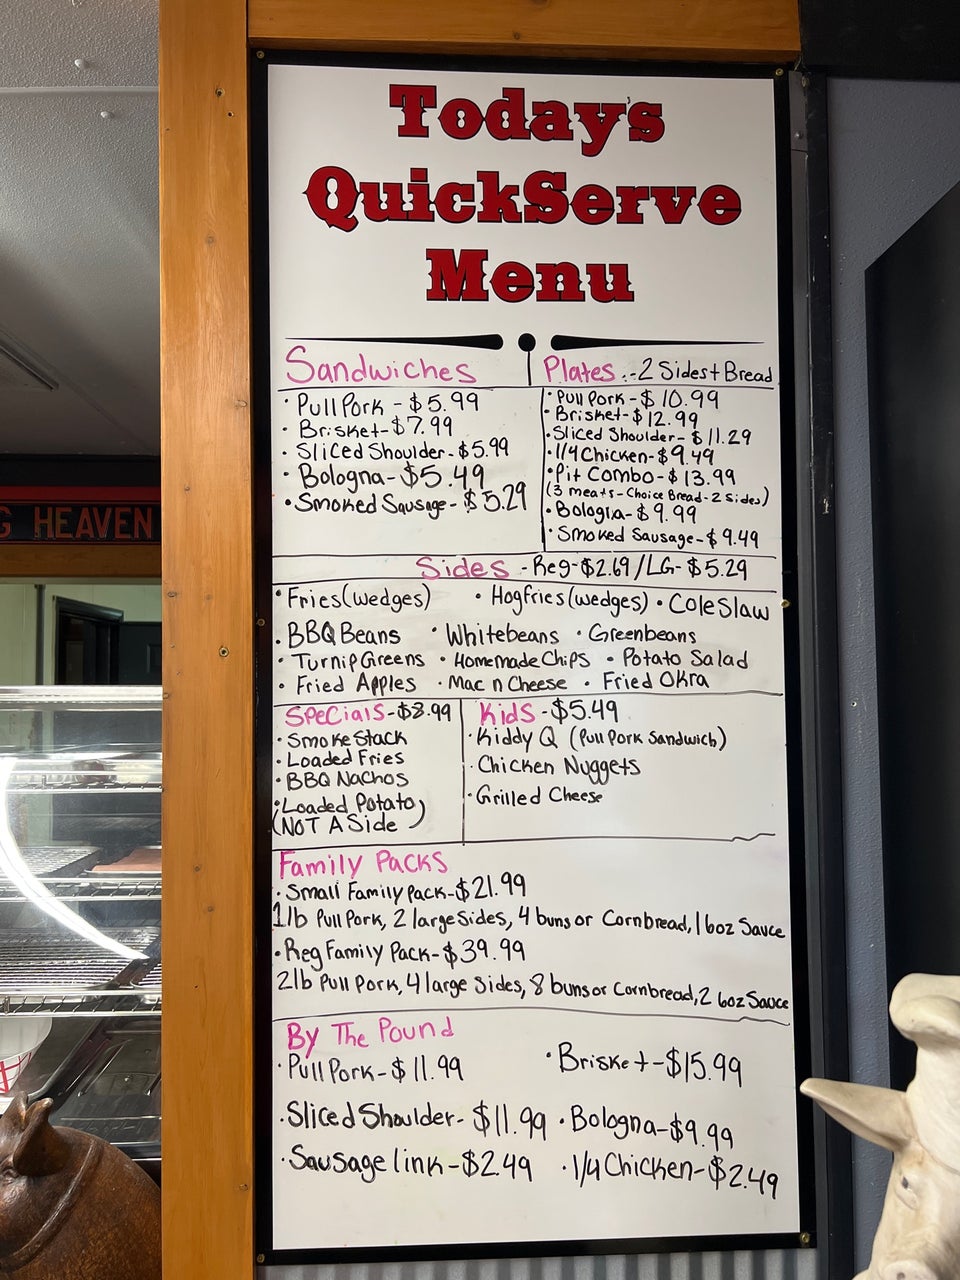 Today's
QuickServe
Menu
Sandwiches
· Pull Pork - $5.99
· Brisket - $7.99
· Sliced Shoulder - $5.99
· Bologna - $5.49
· Smoked Sausage - $5.29
Plates - 2 Sides + Bread
· Pull Pork - $10.99
· Brisket - $12.99
· Sliced Shoulder - $11.29
· 1/4 Chicken - $9.49
· Pit Combo - $13.99
(3 meats - Choice Bread - 2 Sides)
· Bologna - $9.99
· Smoked Sausage - $9.49
Sides - Reg - $2.69 / LG - $5.29
· Fries (wedges) · Hogfries (wedges) · Cole Slaw
· BBQ Beans · Whitebeans · Greenbeans
· Turnip Greens · Homemade Chips · Potato Salad
· Fried Apples · Mac n Cheese · Fried Okra
Specials - $8.99
· Smoke Stack
· Loaded Fries
· BBQ Nachos
· Loaded Potato
(NOT A Side)
Kids - $5.49
· Kiddy Q (Pull Pork Sandwich)
· Chicken Nuggets
· Grilled Cheese
Family Packs
· Small Family Pack - $21.99
1lb Pull Pork, 2 large Sides, 4 buns or Cornbread, 1 6oz Sauce
· Reg Family Pack - $39.99
2lb Pull Pork, 4 large Sides, 8 buns or Cornbread, 2 6oz Sauce
By The Pound
· Pull Pork - $11.99 · Brisket - $15.99
· Sliced Shoulder - $11.99 · Bologna - $9.99
· Sausage link - $2.49 · 1/4 Chicken - $2.49
G HEAVEN